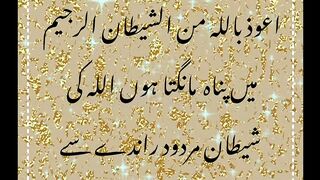 اعوذ باللہ من الشیطان الرجیم
میں پناہ مانگتا ہوں اللہ کی
شیطان مردود راندے سے